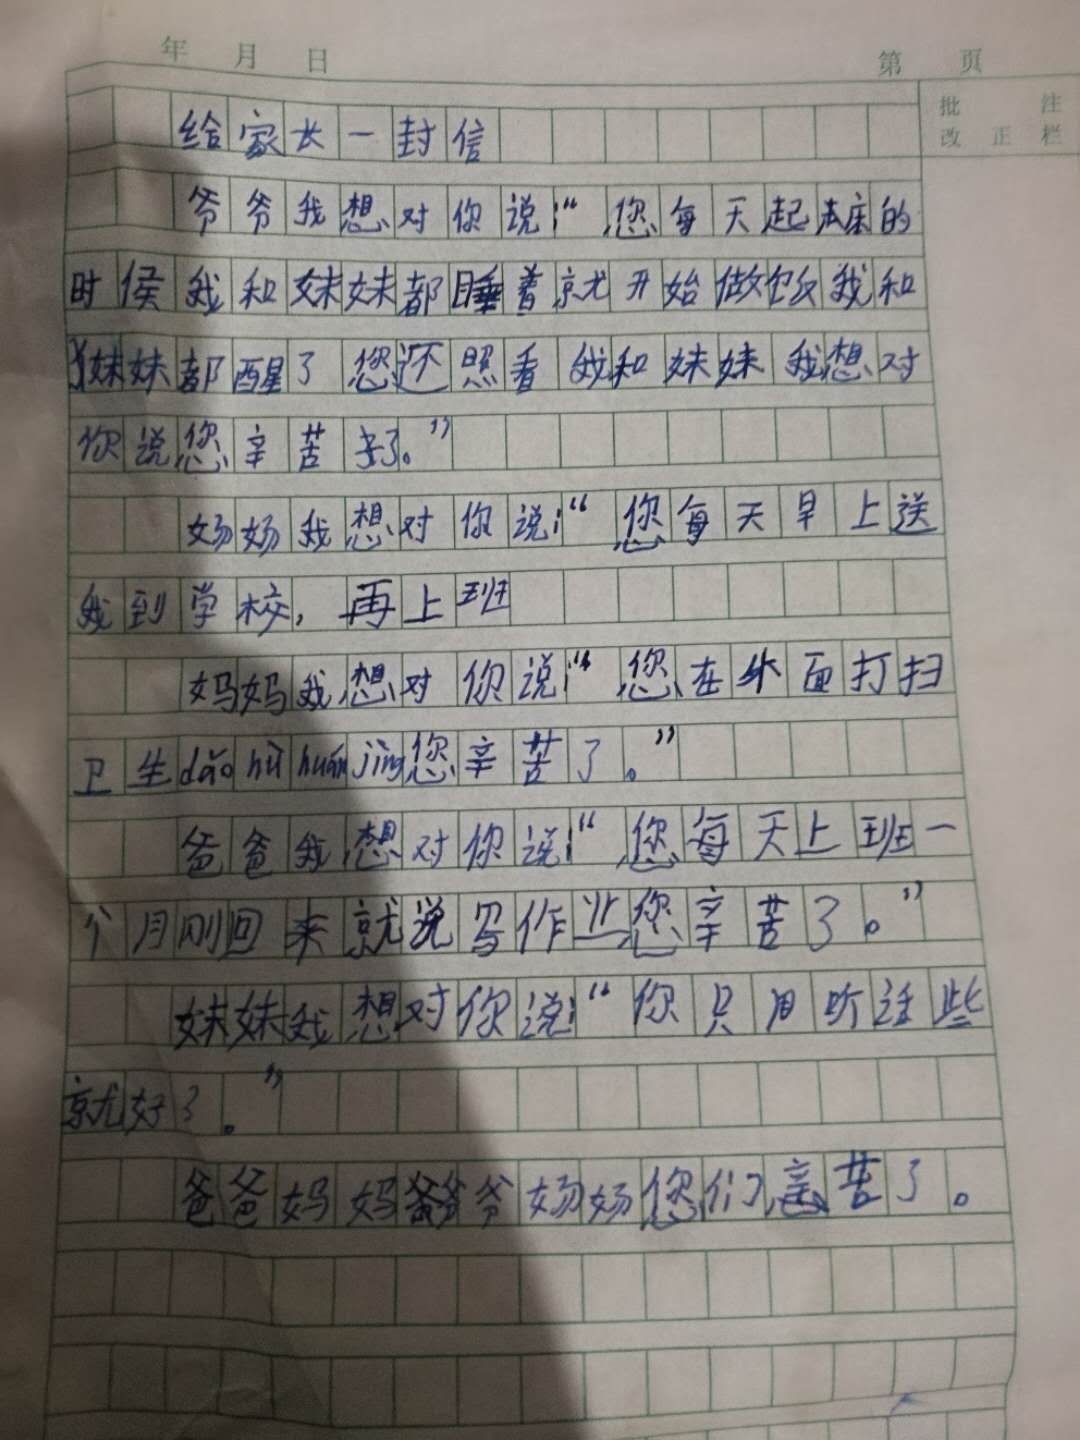 年 月 日
第 页
批 注
改 正 栏
给家长一封信
爷爷我想对你说：“您每天起床的
时侯我和妹妹都睡着就开始做饭我和
妹妹都醒了您还照看我和妹妹我想对
你说您辛苦了。”
奶奶我想对你说：“您每天早上送
我到学校，再上班
妈妈我想对你说：“您在外面打扫
卫生dǎo hù huán jìng您辛苦了。”
爸爸我想对你说：“您每天上班一
个月刚回来就说写作业您辛苦了。”
妹妹我想对你说：“你只用听话些
就好了。”
爸爸妈妈爷爷奶奶您们辛苦了。